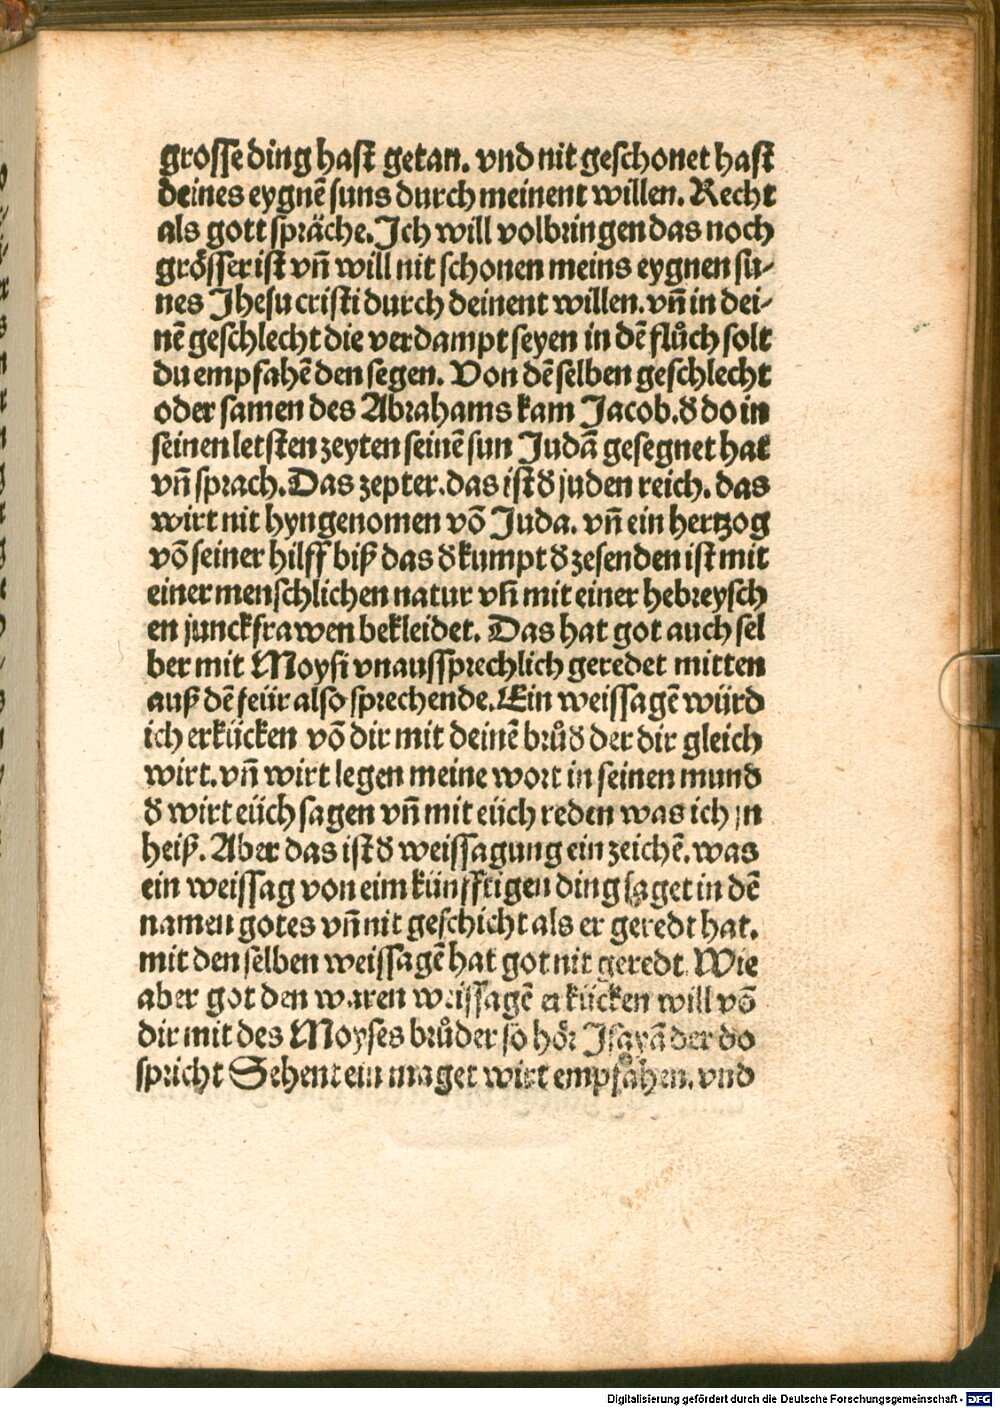 grosse ding hast getan. vnd nit geschonet hast
deines eygnē suns durch meinent willen. Recht
als gott spräche. Ich will volbringen das noch
grösser ist vñ will nit schonen meins eygnen su-
nes Jhesu cristi durch deinent willen. vñ in dei-
nē geschlecht die verdampt seyen in dē flůch solt
du empfahē den segen. Von dē selben geschlecht
oder samen des Abrahams kam Jacob. đ do in
seinen letsten zeyten seinē sun Judā gesegnet hat
vñ sprach. Das zepter. das ist đ juden reich. das
wirt nit hyngenomen vō Juda. vñ ein hertzog
vō seiner hilff biß das đ kumpt đ zesenden ist mit
einer menschlichen natur vñ mit einer hebreysch
en junckfrawen bekleidet. Das hat got auch sel
ber mit Moysi vnaussprechlich geredet mitten
auß dē feür also sprechende. Ein weissagē würd
ich erkücken vō dir mit deinē brůđ der dir gleich
wirt. vñ wirt legen meine wort in seinen mund
đ wirt eüch sagen vñ mit eüch reden was ich jn
heiß. Aber das ist đ weissagung ein zeichē. was
ein weissag von eim künfftigen ding saget in dē
namen gotes vñ nit geschicht als er geredt hat.
mit den selben weissagē hat got nit geredt. Wie
aber got den waren weissagē erkücken will vō
dir mit des Moyses brůder so hör Jsayā der do
spricht Sehent ein maget wirt empfåhen. vnd
Digitalisierung gefördert durch die Deutsche Forschungsgemeinschaft - DFG